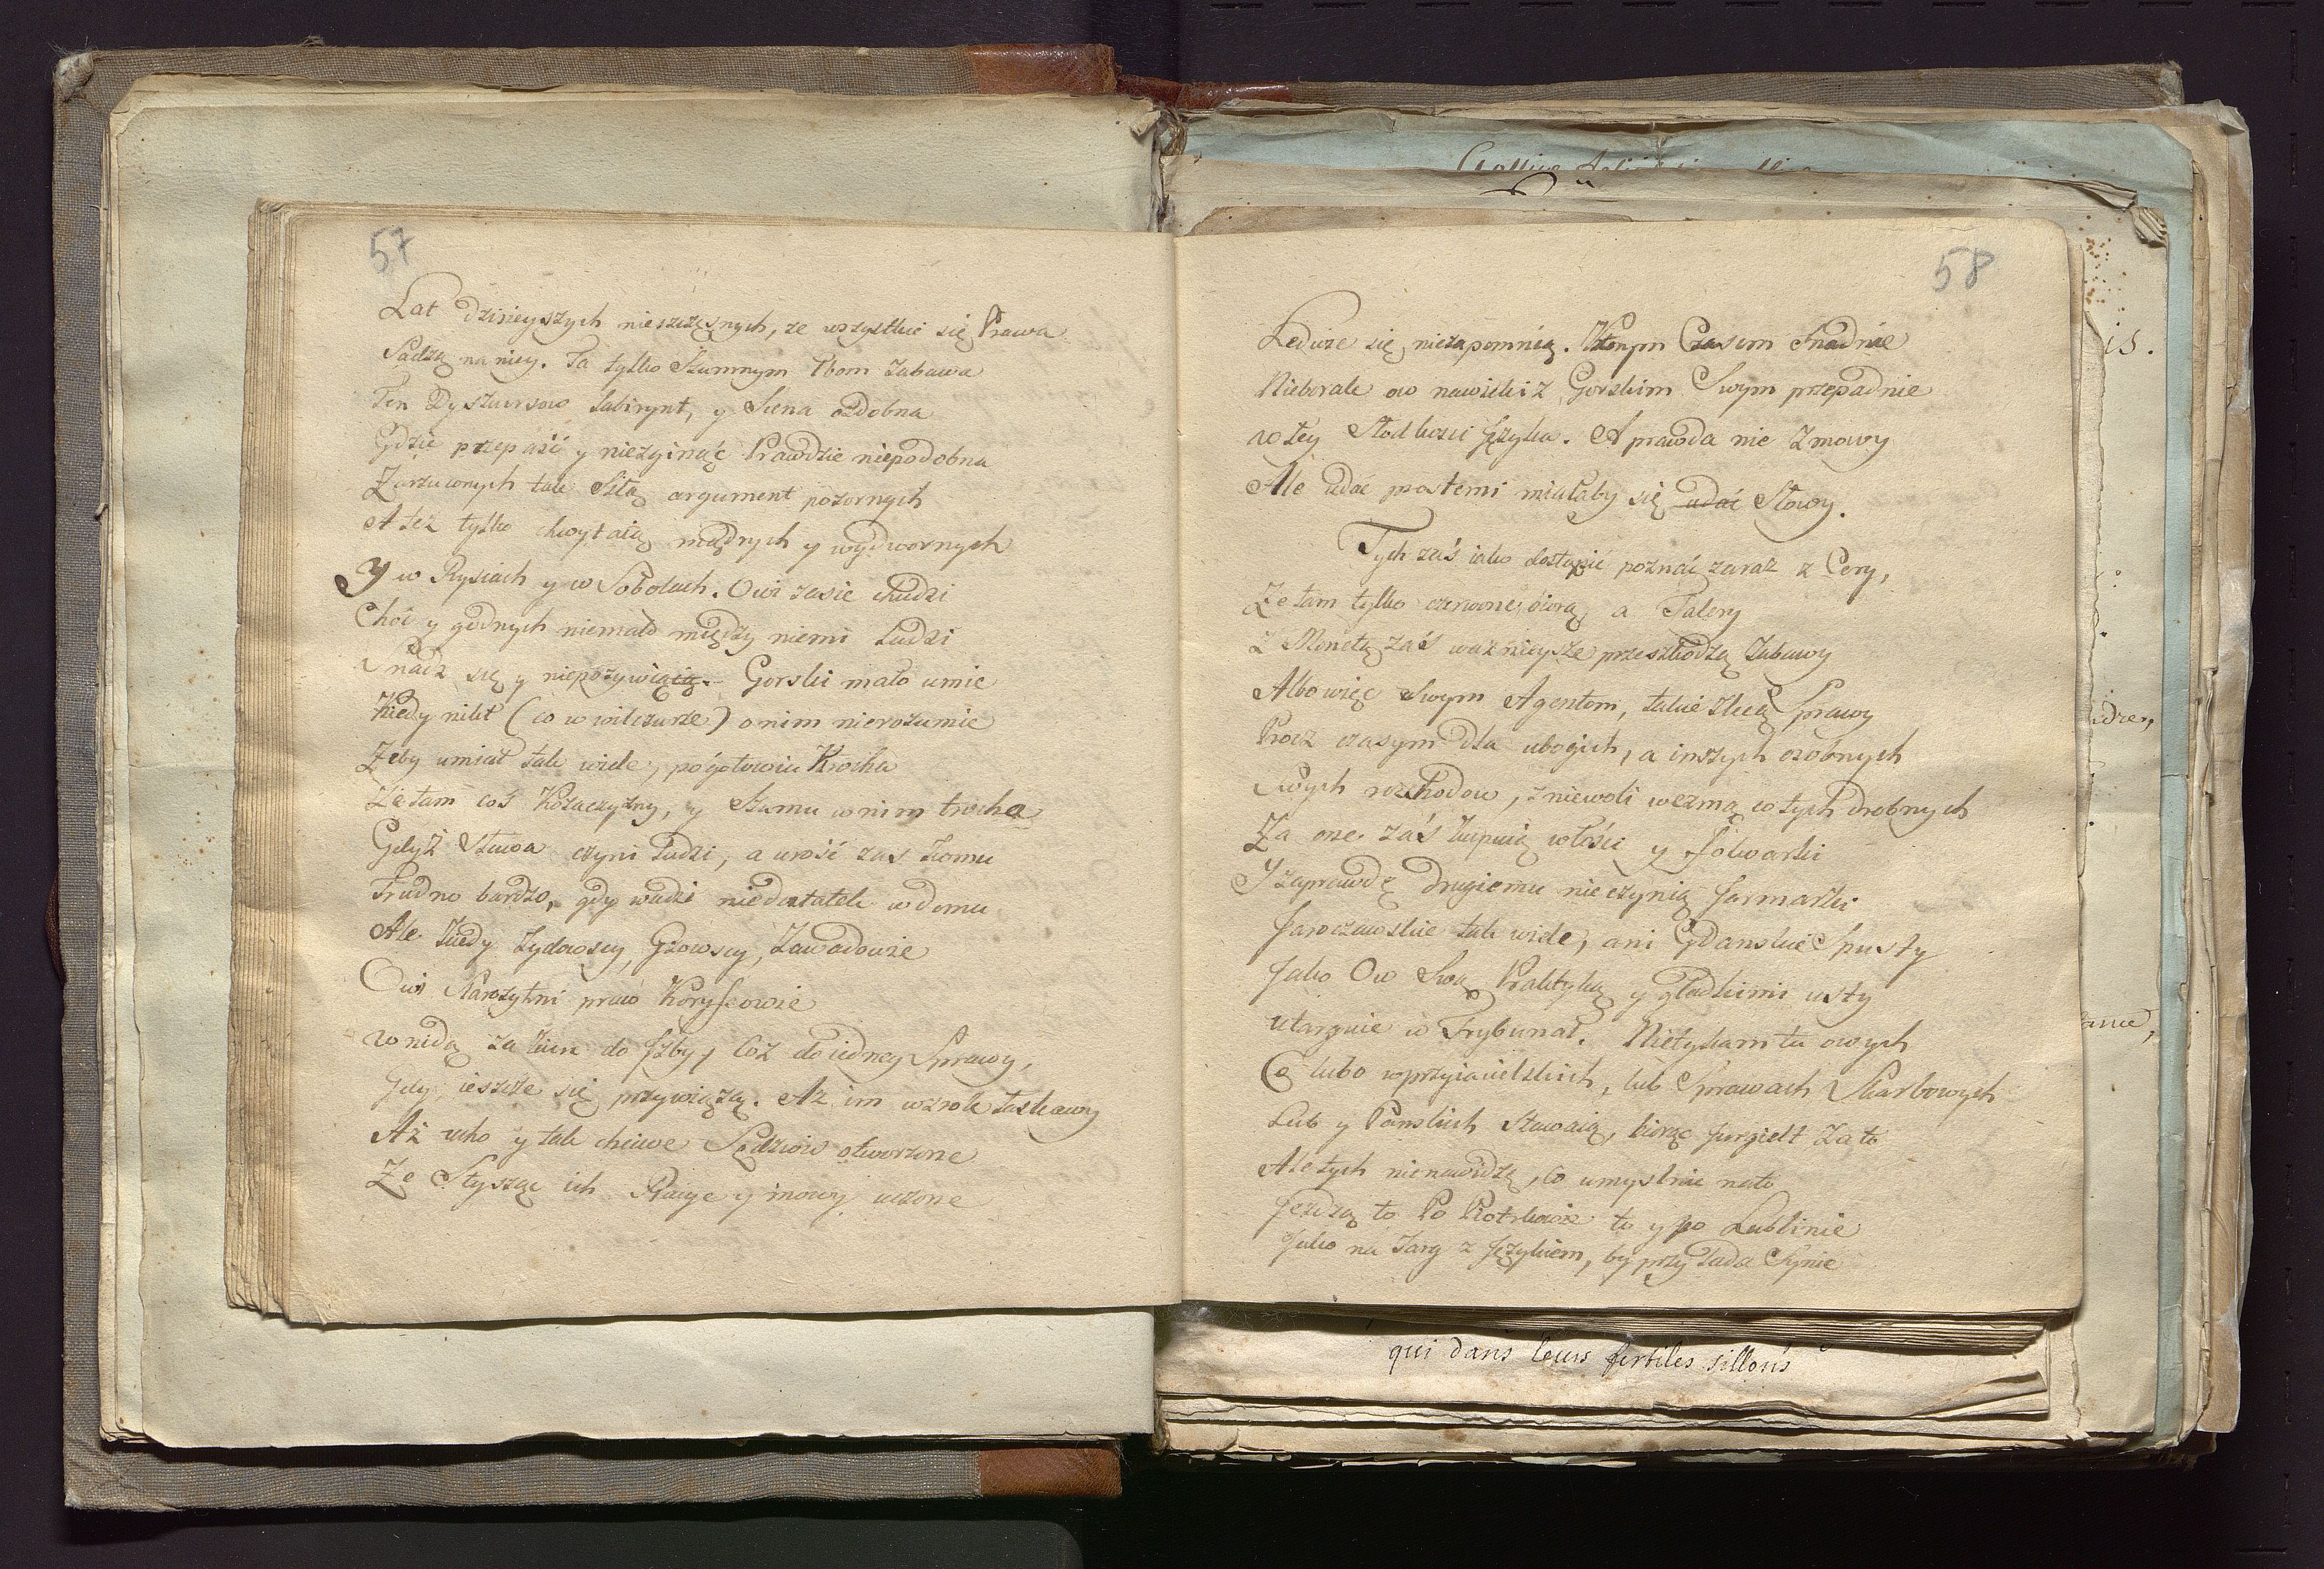 57
Lat dzisieyszych nieszczęsnych, że wszystkie się Prawa
Sadzą na niey. Ta tylko Szumnym Łbom Zabawa
Ten Dyszkursow Labirynt, y Scena ozdobna
Gdzie przepaść y niezginąć Prawdzie niepodobna
Zarzuconych tak Siłą argument pozornych
A też tylko chwytaią mądrych y wydwornych
Y w Rysiach y w Sobolach. Owi zasie chudzi
Choć y godnych niemało między niemi Ludzi
Snadz się y niepożywią. Gorski mało umie
Kiedy nikt (co w wilczurze) o nim nierozumie
Żeby umiał tak wiele, pogotowiu Krocha
Że tam coś Kozaczyzny, y Szumu w nim trocha
Gdyż Sława czyni Ludzi, a urość zaś komu
Trudno bardzo, gdy wadzi niedostatek w domu
Ale kiedy Żydowscy, Gzowscy, Zawadowie
Owi Naszytni praw Koryfeowie
wnidą za kim do Jzby, Coż do iedney Sprawy,
Gdy ieszcze się przywiążą. Aż im wzrok łaskawy
Aż ucho y tak chciwe Sędziow otworzone
Że Słysząc ich Racye y mowy uczone
58
Ledwie się niezapomnią. Ktorym Czasem Snadnie
Nieborak ow nawiski z Gorskim Swym przepadnie
w tey Słodkosci Języka. A prawda nie Zmowy
Ale udać prostemi miałaby się udać Słowy.
Tych zaś iako dostąpić poznać zaraz z Cery,
Że tam tylko czerwone biorą, a Talery
Z Monetą zaś ważnieysze przeszkodzą Zabawy
Albo więc Swym Agentom, takie zlecą Sprawy
Procz czasym dla ubogich, a inszych osobnych
Swych rozchodow, z niewoli wezmą co tych drobnych
Za one zaś kupuią włości y folwarki
Y zaprawdę drugiemu nie czynią Jarmarki
Jarosławskie tak wiele, ani Gdanskie Spusty
Jako Ow Swą Praktyką y gładkimi usty
utarguie w Trybunał. Nietykam tu owych
Co lubo w przyiacielskich, lub Sprawach Skarbowych
Lub y Panskich stawaią, biorąc Jurgielt za to
Ale tych nienawidzę, co umyslnie na to
Jezdzą to Po Piotrkowie to y po Lublinie
Jako na Targ z Językiem, by przy Lada Czynie
qui dans leurs fertiles sillons
is.